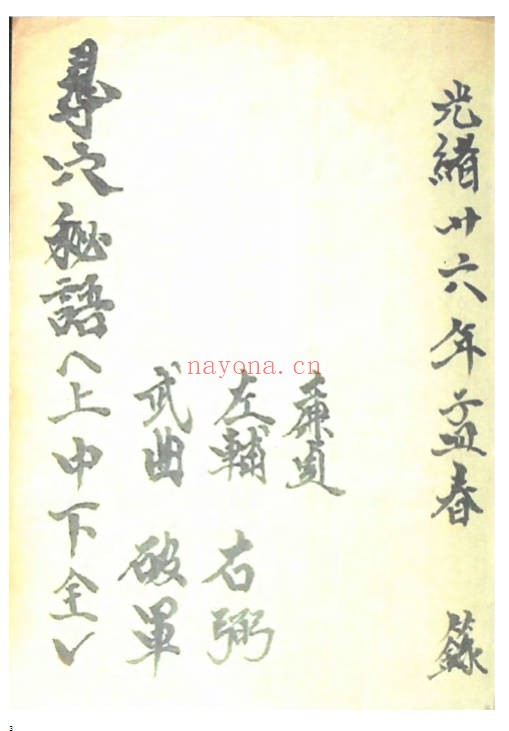 光緒卅六年孟春 錄
廉貞
左輔 右弼
武曲 破軍
尋穴秘語（上中下全）
nayona.cn
3